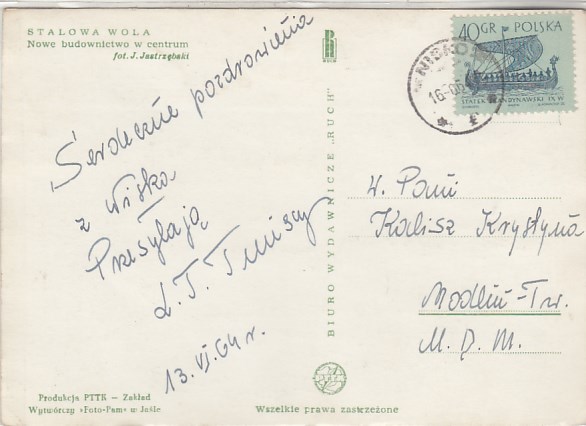 STALOWA WOLA
Nowe budownictwo w centrum
fot. J. Jastrzębski
Serdeczne pozdrowienia
z Niska
Przesyłają
13. VI. 64 r.
Produkcja PTTK — Zakład
Wytwórczy »Foto-Pam« w Jaśle
BIURO WYDAWNICZE „RUCH"
Wszelkie prawa zastrzeżone
40 GR POLSKA
NISKO
16-06
W. Pani
Kalisz Krystyna
Modlin-Tw.
M. D. M.